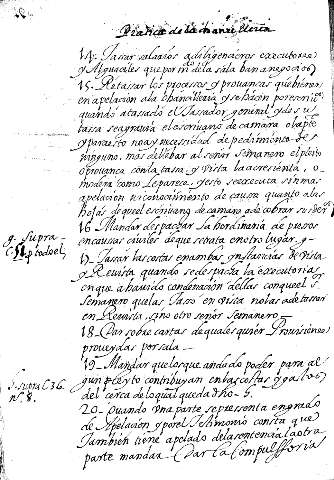 Practica de la chancilleria
14. Tassar salarios a deligencieros executores
y Alguaciles que por mdo de la sala ban a negocios
15. Retassar los procesos y provansas que bienen
en apelasion a la chansilleria y se hasen por escrito
quando a tasado el Tasador general y de su
tassa se agravia el escrivano de camara o la pte
y para esto no ay necesidad de pedimiento de
ninguno. mas de llebar al señor Semanero el pleito
o provanca con la tasa, y vista la acresienta, o
modera como le parece, y esto se executa sin mas
apelasion ni conocimiento de causa quanto a las
hojas de que el escrivano de camara a de cobrar sus der
16 Mandar despachar la hordinaria de presos
en causas civiles de que se trata en otro lugar, g.
g. supra
17. Tasar las costas en ambas ynstancias de vista
y Revista quando se despacha la executoria,
en que a havido condenasion dellas con que el Sr
Semanero que las Taso en vista no las a de tassar
en Revista, sino otro señor Semanero
18. Dar sobre cartas de quales quier Provisiones
proveydas por sala
19. Mandar que los que an dado poder para al
gun pleyto contribuyan en las costas y gastos
J. supra C. 36.
n. 8.
del cerca de lo qual queda dho. 5.
20. Quando Una parte se presenta en grado
de Apelacion y por el testimonio consta que
Tambien tiene apelado de la sentencia la otra
parte mandar. Dar la Compulssoria